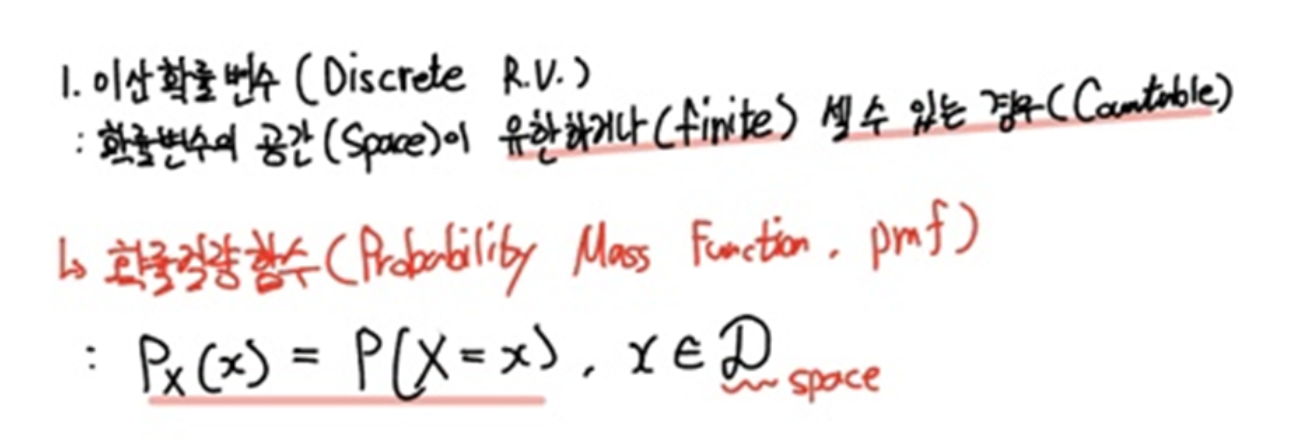 1. 이산확률변수 (Discrete R.V.)
: 확률변수의 공간(Space)이 유한하거나(finite) 셀 수 있는 경우(Countable)
↳ 확률질량함수(Probability Mass Function, pmf)
: P_X(x) = P(X=x), x ∈ 𝒟
space